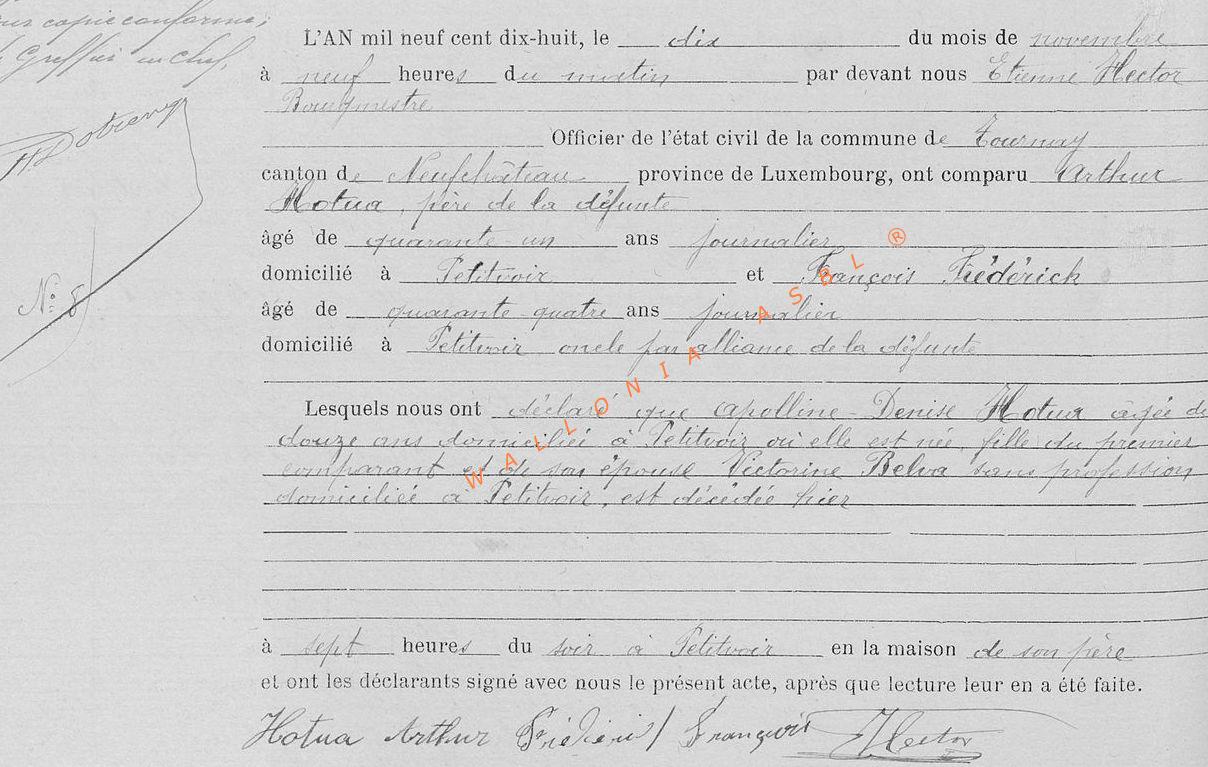 pour copie conforme;
Le Greffier en chef,
L'AN mil neuf cent dix-huit, le dix du mois de novembre
à neuf heures du matin par devant nous Etienne Hector
Bourgmestre
Officier de l'état civil de la commune de Tournay
canton de Neufchâteau province de Luxembourg, ont comparu Arthur
Hotua, père de la défunte
âgé de quarante-un ans journalier
domicilié à Petitvoir et François Frédérick
âgé de quarante-quatre ans journalier
domicilié à Petitvoir oncle par alliance de la défunte
Lesquels nous ont déclaré que Apolline-Denise Hotua âgée de
douze ans domiciliée à Petitvoir où elle est née, fille du premier
comparant et de son épouse Victorine Belva sans profession
domiciliée à Petitvoir, est décédée hier
à sept heures du soir à Petitvoir en la maison de son père
et ont les déclarants signé avec nous le présent acte, après que lecture leur en a été faite.
Hotua Arthur Frédérick François Hector
No: 8
WALLONIA ASBL ®